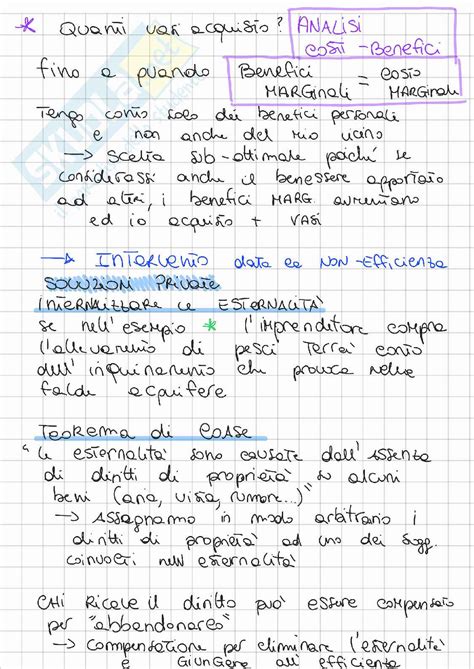 * Quanti vasi acquisto? ANALISI
COSTI - Benefici
fino a quando Benefici MARGinali = COSTO MARGINALI
Tengo conto solo dei benefici personali
e non anche del mio vicino
→ Scelta sub-ottimale poiché se
considerassi anche il benessere apportato
ad altri, i benefici MARG. aumentano
ed io acquisto + VASI
→ INTERVENTO data la NON-Efficienza
SOLUZIONI PRIVATE
INTERNALIZZARE le ESTERNALITÀ
se nell'esempio * l'imprenditore compra
l'allevamento di pesci Terrà conto
dell'inquinamento che provoca nelle
falde acquifere
TEOREMA di COASE
"le esternalità sono causate dall'ASSENZA
di diritti di proprietà su alcuni
beni (aria, vista, rumore...)"
→ ASSEGNAMO in modo arbitrario i
diritti di proprietà ad uno dei sogg.
coinvolti nell'esternalità
CHI Riceve il diritto può essere compensato
per "abbandonare"
→ compensazione per eliminare l'esternalità
e GIUNGERE all'efficiente